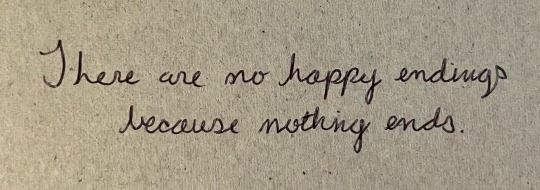 There are no happy endings
because nothing ends.